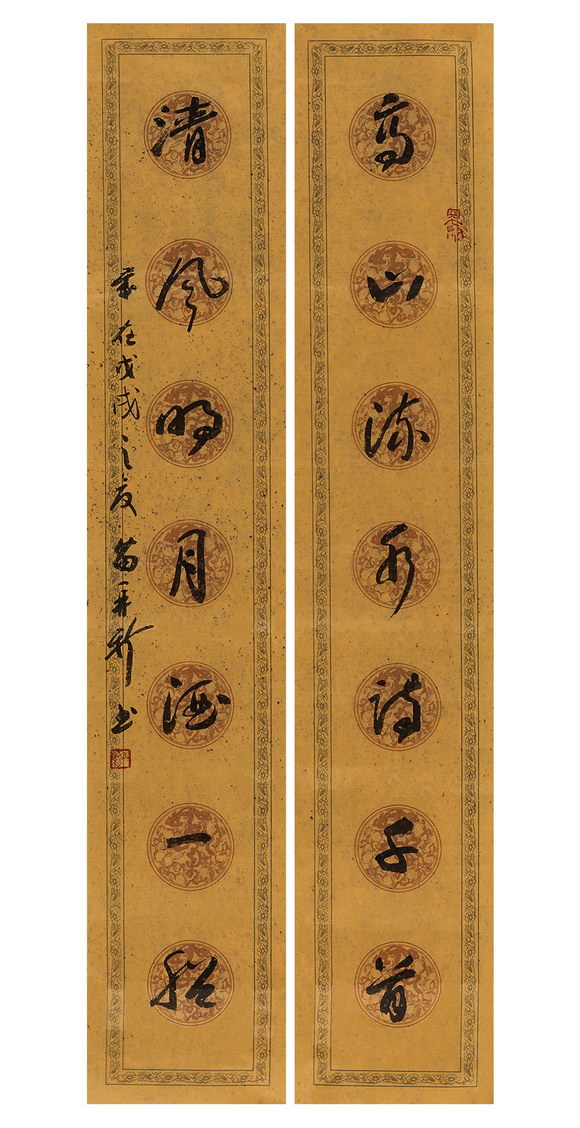 高山流水詩千首
清风明月酒一船
歲在戊戌之夏苗再新书